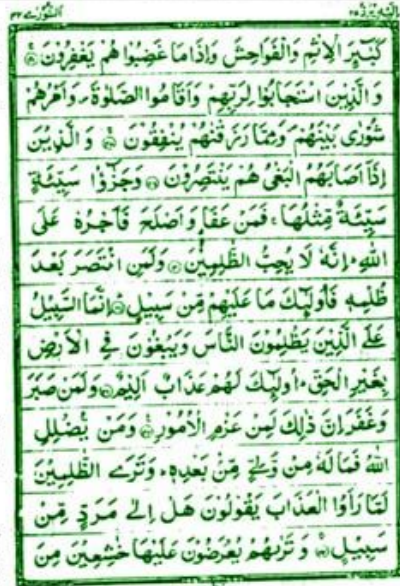 الشورٰى ٤٢
اليه يرد ٢٥
كَبٰٓئِرَ الْاِثْمِ وَالْفَوَاحِشَ وَاِذَا مَا غَضِبُوْا هُمْ يَغْفِرُوْنَ
وَالَّذِيْنَ اسْتَجَابُوْا لِرَبِّهِمْ وَاَقَامُوا الصَّلٰوةَ وَاَمْرُهُمْ
شُوْرٰى بَيْنَهُمْ وَمِمَّا رَزَقْنٰهُمْ يُنْفِقُوْنَ وَالَّذِيْنَ
اِذَآ اَصَابَهُمُ الْبَغْيُ هُمْ يَنْتَصِرُوْنَ وَجَزٰٓؤُا سَيِّئَةٍ
سَيِّئَةٌ مِّثْلُهَا فَمَنْ عَفَا وَاَصْلَحَ فَاَجْرُهٗ عَلَى
اللّٰهِ اِنَّهٗ لَا يُحِبُّ الظّٰلِمِيْنَ وَلَمَنِ انْتَصَرَ بَعْدَ
ظُلْمِهٖ فَاُولٰٓئِكَ مَا عَلَيْهِمْ مِّنْ سَبِيْلٍ اِنَّمَا السَّبِيْلُ
عَلَى الَّذِيْنَ يَظْلِمُوْنَ النَّاسَ وَيَبْغُوْنَ فِي الْاَرْضِ
بِغَيْرِ الْحَقِّ اُولٰٓئِكَ لَهُمْ عَذَابٌ اَلِيْمٌ وَلَمَنْ صَبَرَ
وَغَفَرَ اِنَّ ذٰلِكَ لَمِنْ عَزْمِ الْاُمُوْرِ وَمَنْ يُّضْلِلِ
اللّٰهُ فَمَا لَهٗ مِنْ وَّلِيٍّ مِّنْ بَعْدِهٖ وَتَرَى الظّٰلِمِيْنَ
لَمَّا رَاَوُا الْعَذَابَ يَقُوْلُوْنَ هَلْ اِلٰى مَرَدٍّ مِّنْ
سَبِيْلٍ وَتَرٰىهُمْ يُعْرَضُوْنَ عَلَيْهَا خٰشِعِيْنَ مِنَ